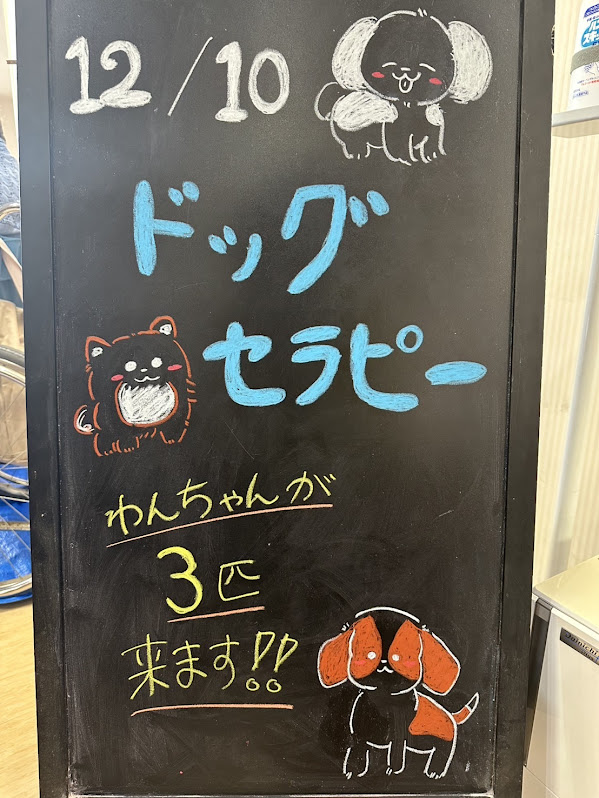 12/10
ドッグ
セラピー
わんちゃんが
3匹
来ます!!